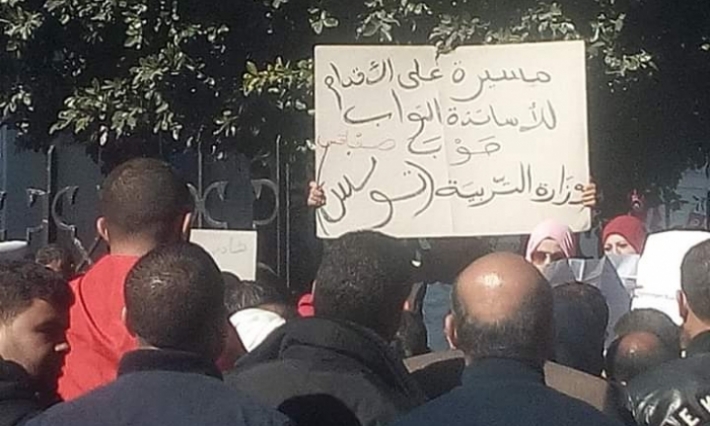 مسيرة على الأقدام
للأساتذة النواب
صوب صفاقس
وزارة التربية (تونس)
شارة